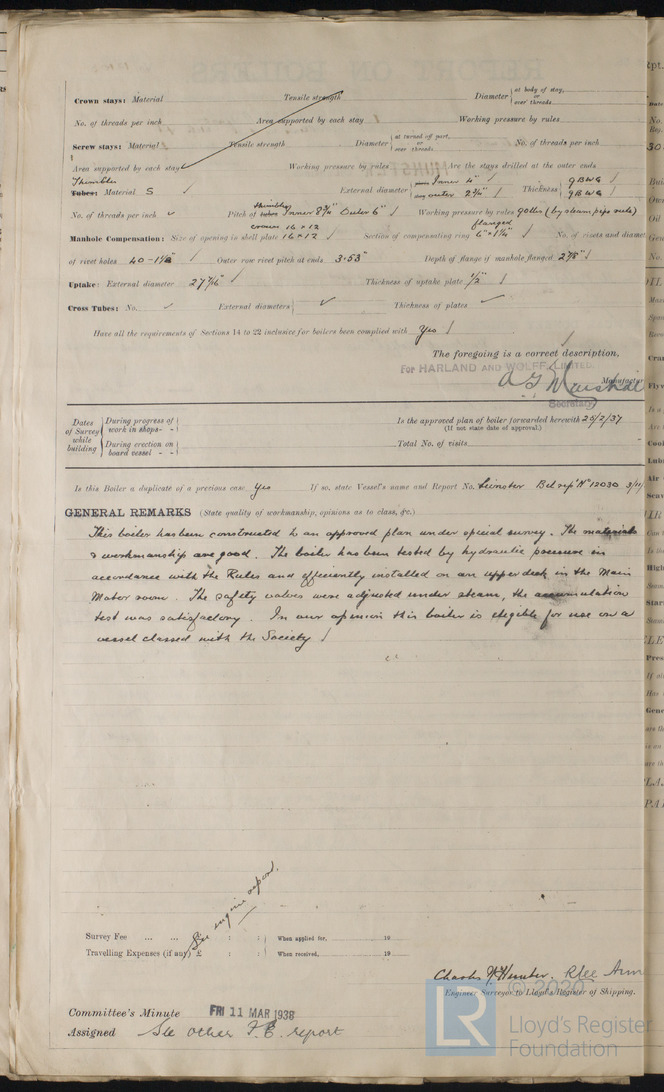 Crown stays: Material Tensile strength Diameter { at body of stay, or over threads
No. of threads per inch Area supported by each stay Working pressure by rules
Screw stays: Material Tensile strength Diameter { at turned off part, or over threads No. of threads per inch
Area supported by each stay Working pressure by rules Are the stays drilled at the outer ends
Thimbles
Tubes: Material S External diameter { Inner 4" outer 2¾" Thickness { 9 BWG 9 BWG
No. of threads per inch Pitch of tubes thimbles Inner 8¾" Outer 6" Working pressure by rules
crown 16 × 12 flanged
Manhole Compensation: Size of opening in shell plate 16 × 12 Section of compensating ring No. of rivets and diamet
of rivet holes 40 - Outer row rivet pitch at ends 3.53" Depth of flange if manhole flanged 2⅞"
Uptake: External diameter 27 7/16" Thickness of uptake plate ½"
Cross Tubes: No. External diameters { Thickness of plates
Have all the requirements of Sections 14 to 22 inclusive for boilers been complied with Yes
The foregoing is a correct description,
For HARLAND AND WOLFF, LIMITED.
A G Marshall Manufactur
Secretary
Dates of Survey while building { During progress of work in shops - - { During erection on board vessel - -
Is the approved plan of boiler forwarded herewith 25/2/37
(If not state date of approval.)
Total No. of visits
Is this Boiler a duplicate of a previous case Yes If so, state Vessel's name and Report No. Leinster Bel rept No 12030
GENERAL REMARKS (State quality of workmanship, opinions as to class, &c.)
This boiler has been constructed to an approved plan under special survey. The materials
& workmanship are good. The boiler has been tested by hydraulic pressure in
accordance with the Rules and efficiently installed on an upper deck in the Main
Motor room. The safety valves were adjusted under steam, the accumulation
test was satisfactory. In our opinion this boiler is eligible for use on a
vessel classed with the Society
See engine report.
Survey Fee ... ... £ : : When applied for, 19
Travelling Expenses (if any) £ : : When received, 19
Charles W Hunter.
Engineer Surveyor to Lloyd's Register of Shipping.
© 2020
Committee's Minute FRI 11 MAR 1938
Assigned See other F.E. report
LR Lloyd's Register
Foundation